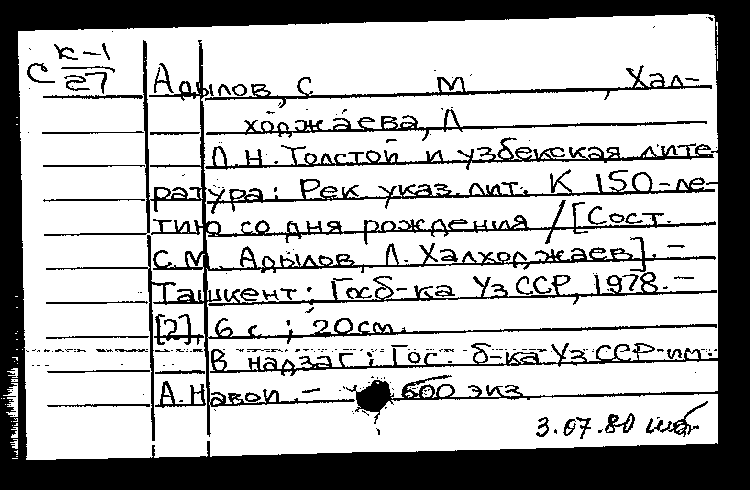 С К-1
27
Адылов, С М , Хал-
ходжаева, Л
Л.Н.Толстой и узбекская лите
ратура: Рек указ.лит. К 150-ле-
тию со дня рождения / [Сост.
С.М. Адылов, Л. Халходжаев]. –
Ташкент: Госб-ка УзССР, 1978. –
[2], 6 с ; 20см.
В надзаг: Гос. б-ка УзССР им.
А.Навои. – 600 экз
3.07.80